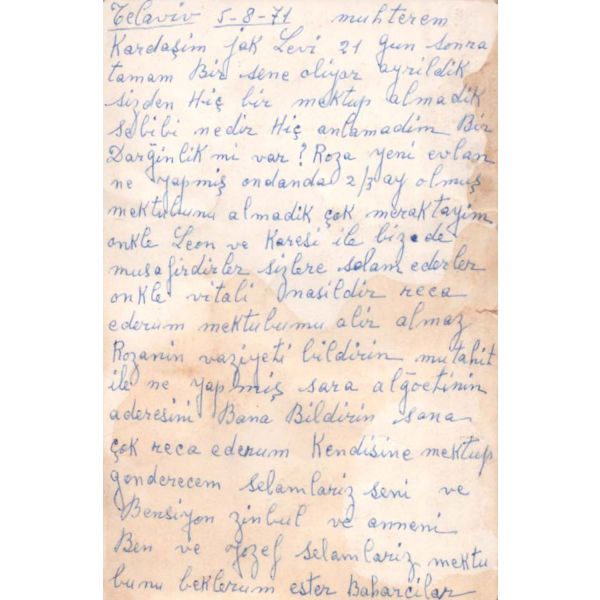 Telaviv 5-8-71 muhterem
Kardaşim jak Levi 21 gun sonra
tamam Bir sene oliyor ayrildik
sizden Hiç bir mektup almadik
sebibi nedir Hiç anlamadim Bir
Darğinlik mi var? Roza yeni evlan
ne yapmiş ondanda 2/3 ay olmuş
mektubunu almadik çok meraktayim
onkle Leon ve Karesi ile bizede
musafirdirler sizlere selam ederler
onkle vitali nasildir reca
ederum mektubumu alir almaz
Rozanin vaziyeti bildirin mutahit
ile ne yapmiş sara alğoetinin
aderesini Bana Bildirin sana
çok reca ederum Kendisine mektup
gonderecem selamlariz seni ve
Bensiyon zinbul ve anneni
Ben ve jozef selamlariz mektu
bunu beklerum ester Baharcilar